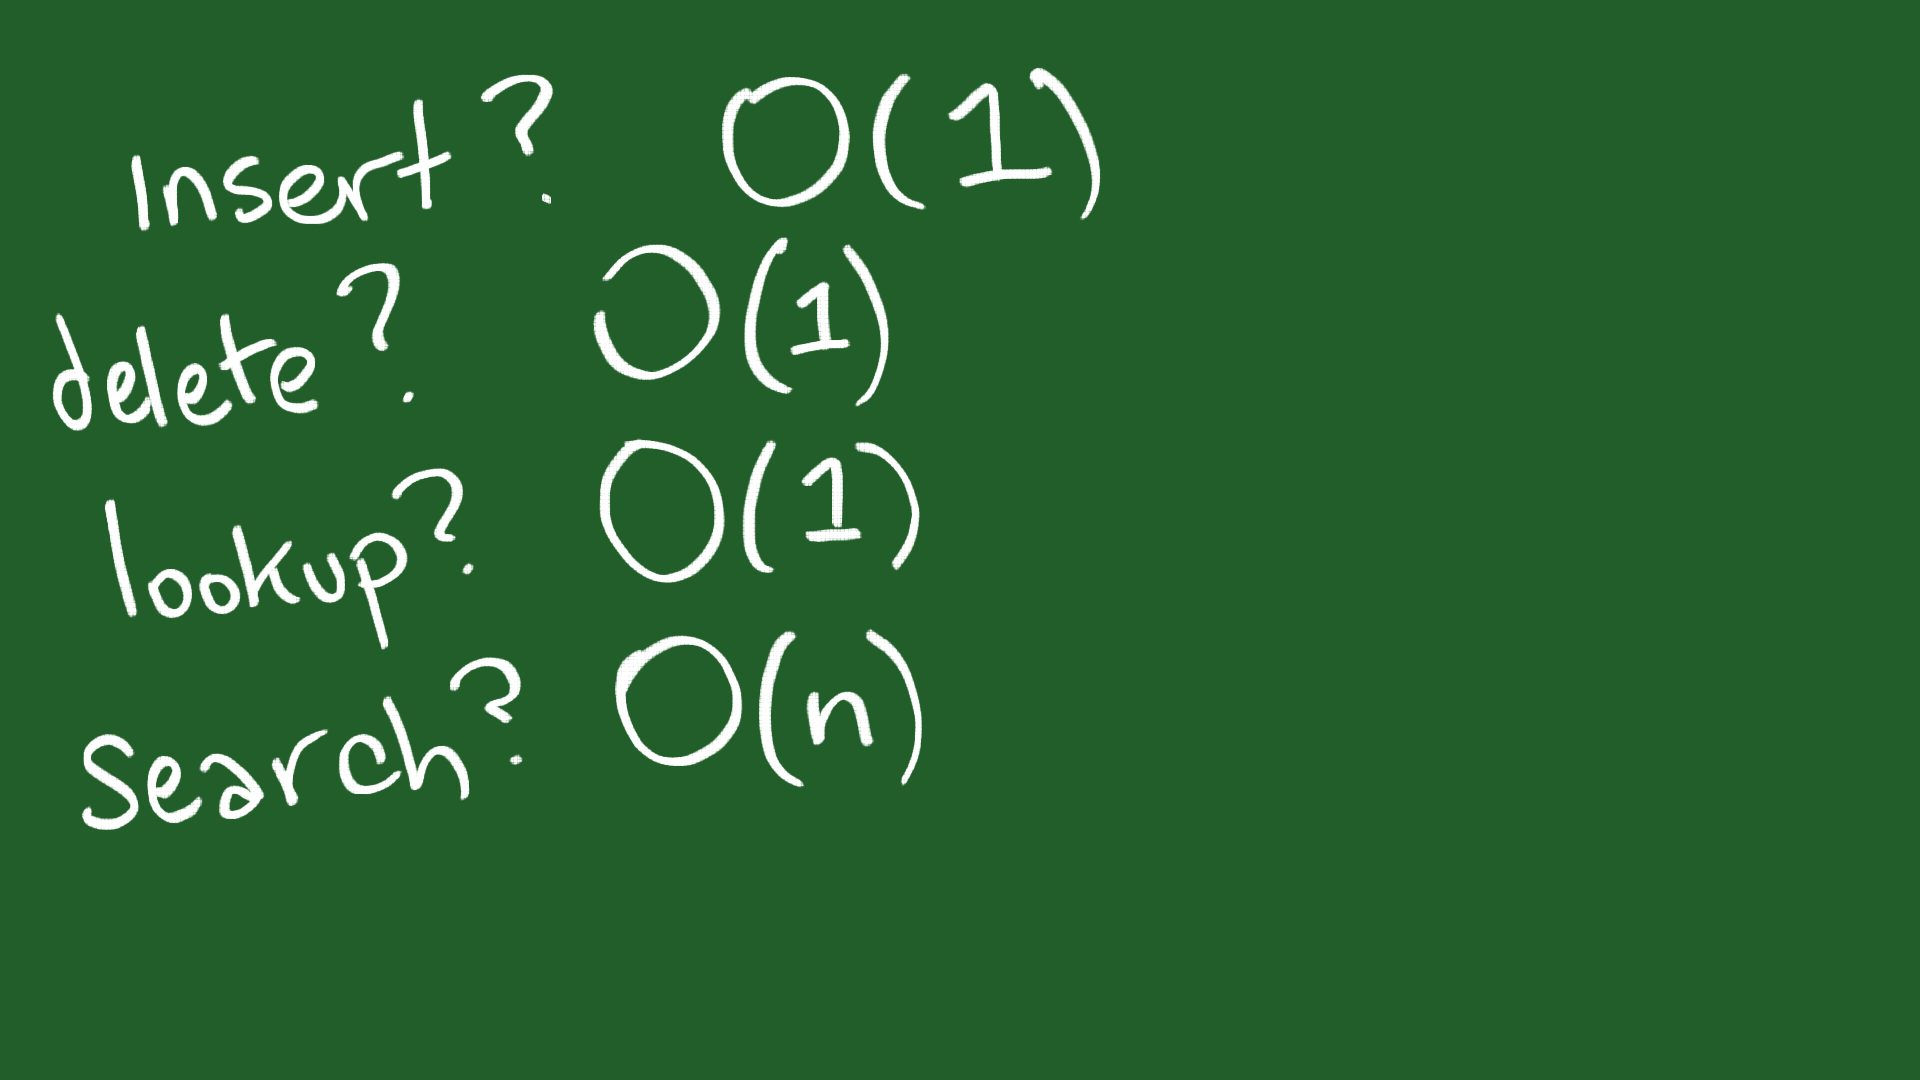 Insert? O(1)
delete? O(1)
lookup? O(1)
Search? O(n)